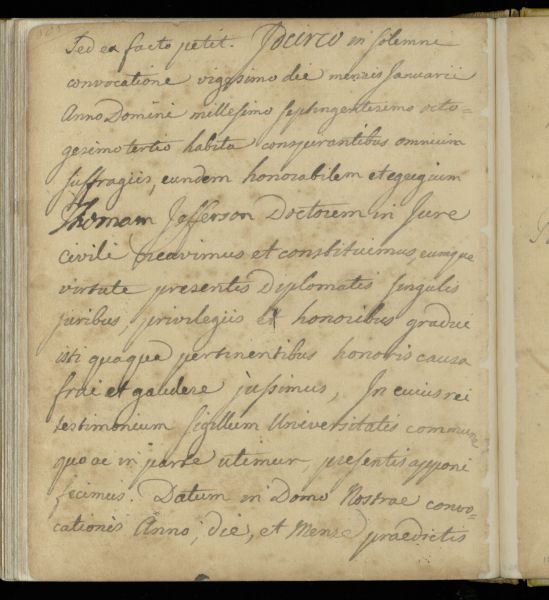 Sed ea facto petit. Idcirco in solemne
convocatione vigesimo die mensis Januarii
Anno Domini millesimo septingentesimo octo=
gesimo tertio habita conspirantibus omnium
suffragiis, eundem honorabilem et egregium
Thomam Jefferson Doctorem in Jure
civili creavimus et constituimus, eumque
virtute presentis Diplomatis singulis
juribus, privilegiis et honoribus gradui
isti quaqua pertinentibus honoris causa
frui et gaudere jussimus, In cuius rei
testimonium sigillum Universitatis commune
quo ac in parte utimur, presentis apponi
fecimus. Datum in Domo Nostrae convo=
cationis Anno, die, et Mense praedictis